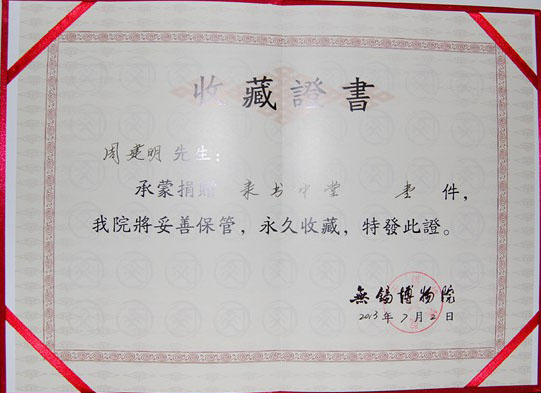 收藏證書
周建明 先生：
承蒙捐贈 隶书中堂 壹 件，
我院將妥善保管，永久收藏，特發此證。
無錫博物院
2013年7月2日